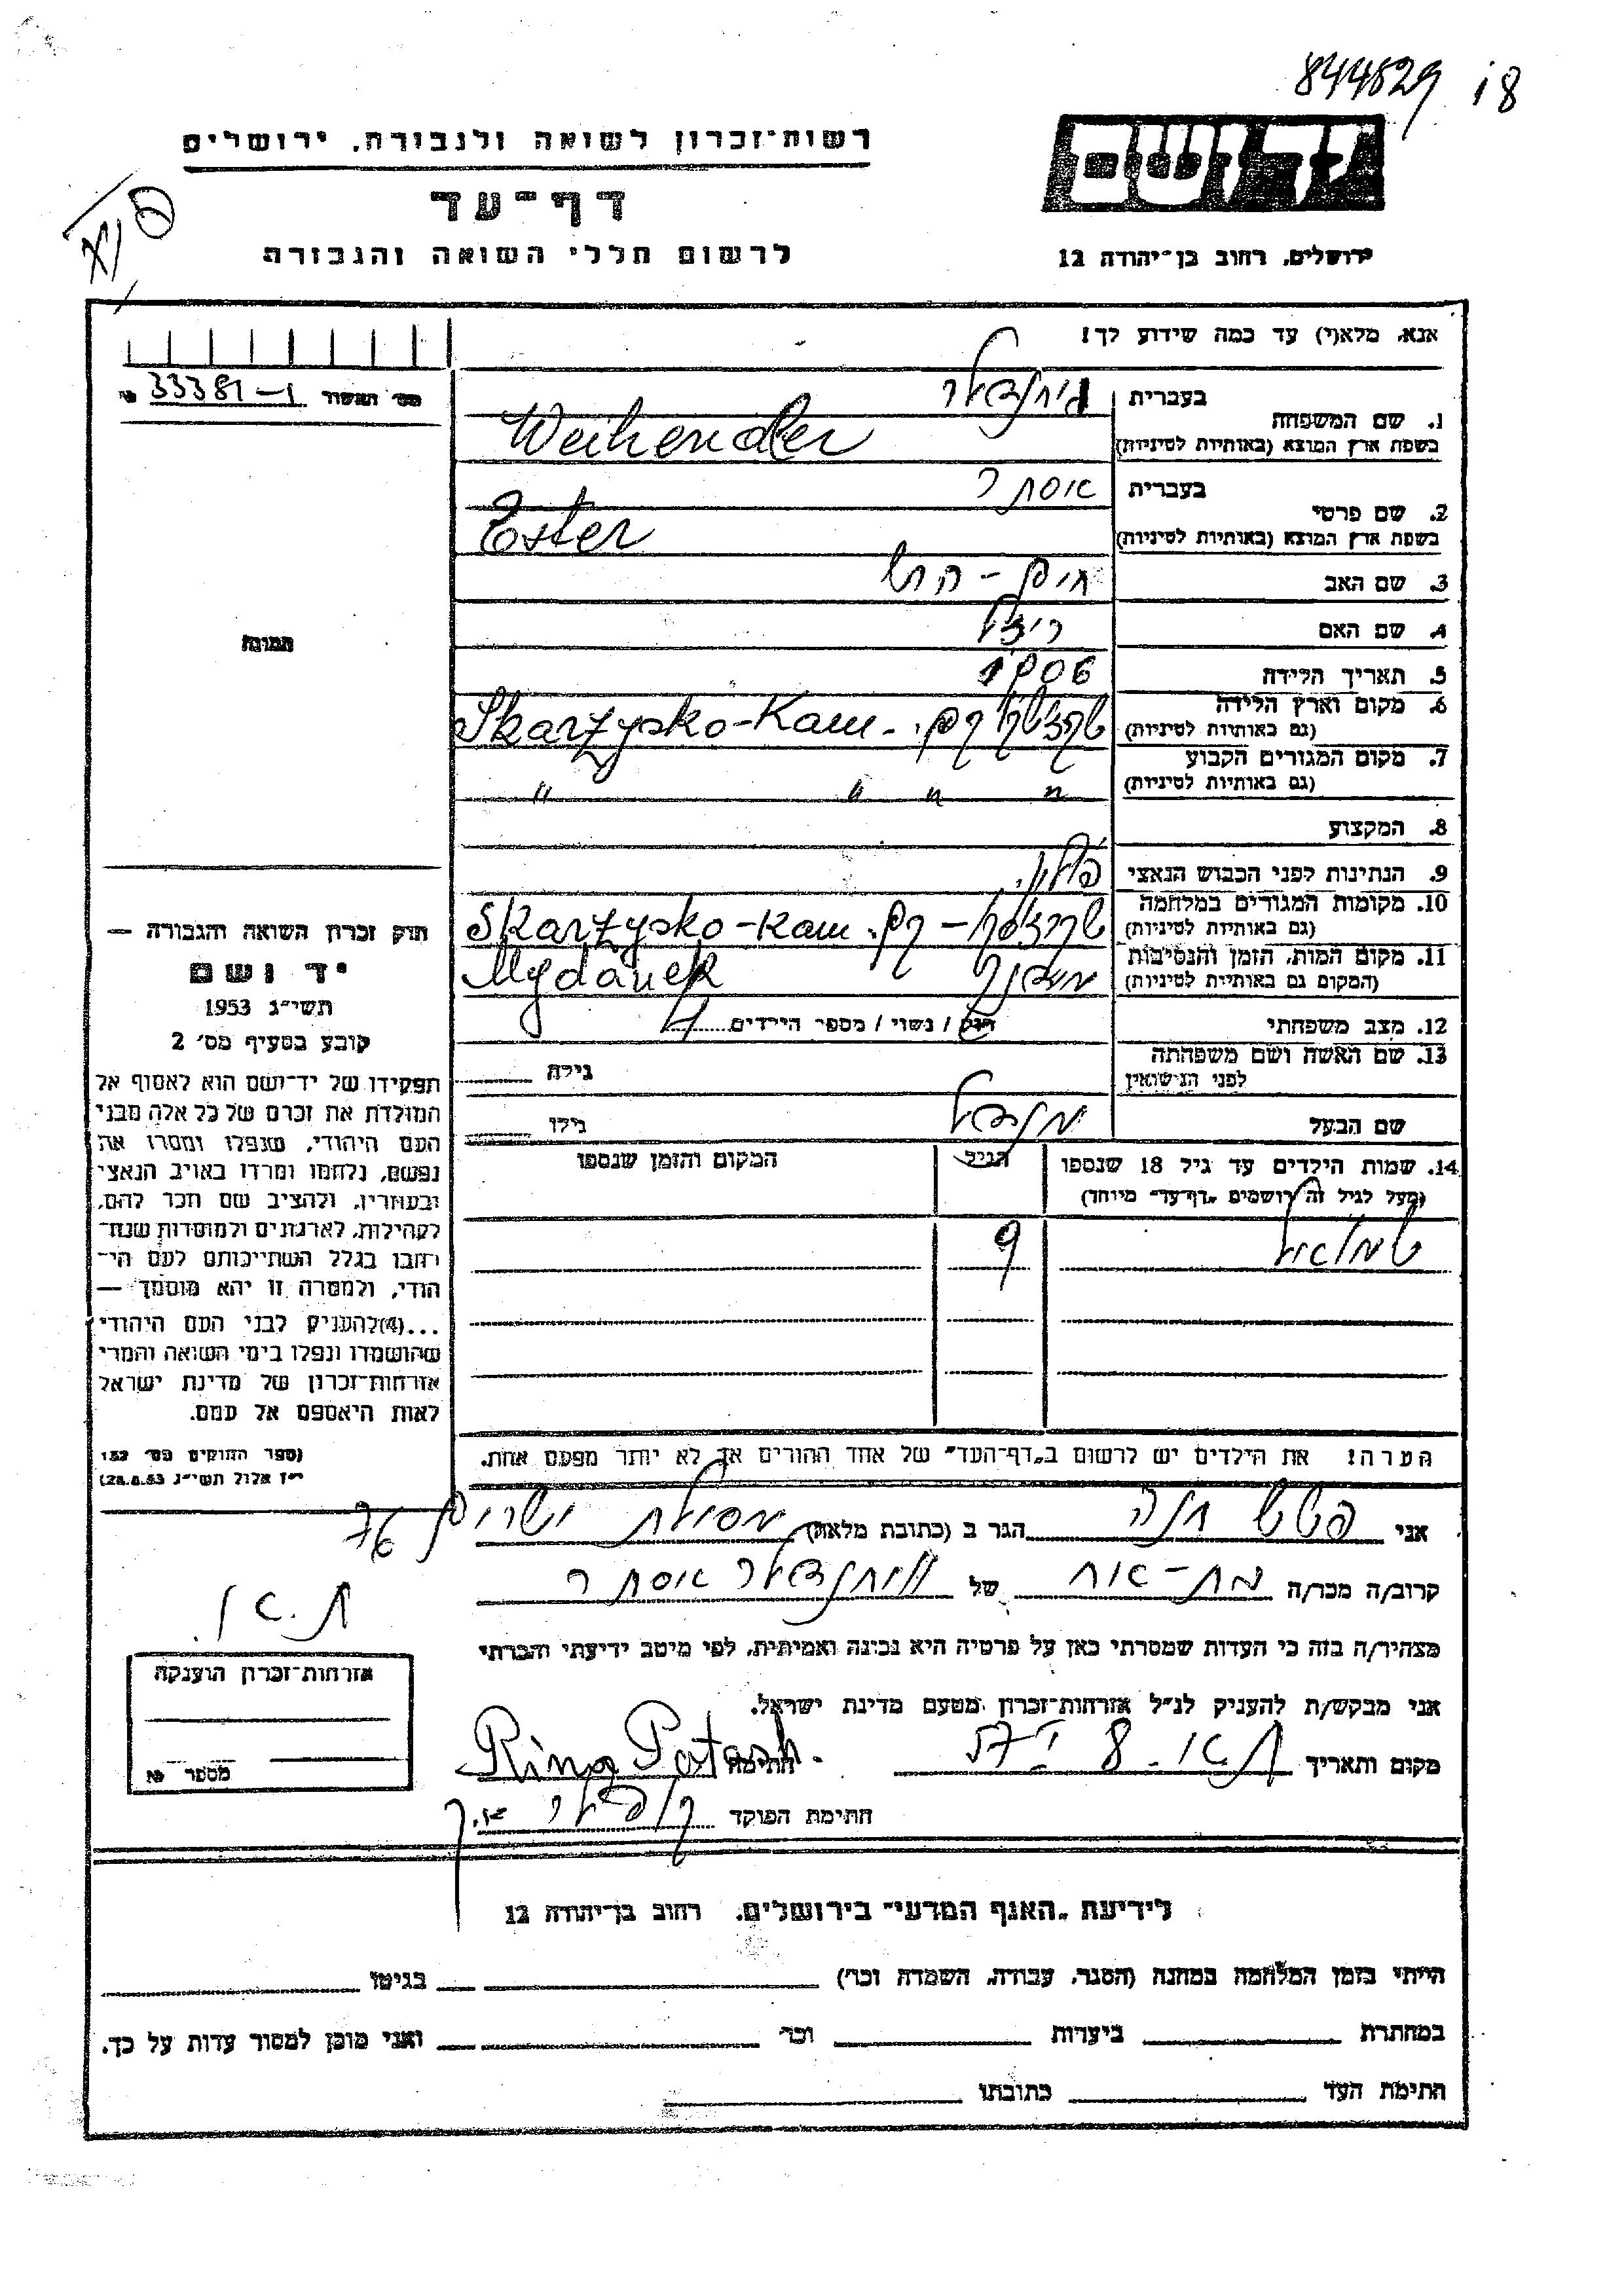 844629 18
רשות־זכרון לשואה ולגבורה, ירושלים
דף־עד
לרשום חללי השואה והגבורה
ירושלים, רחוב בן־יהודה 12
אנא, מלא(י) עד כמה שידוע לך!
מס' תאשור 33381-1 №
1. שם המשפחה
בעברית
בשפת ארץ המוצא (באותיות לטיניות)
Weihendler
2. שם פרטי
בעברית אסתר
בשפת ארץ המוצא (באותיות לטיניות) Ester
3. שם האב חיים - הרש
4. שם האם רייזל
5. תאריך הלידה 1906
6. מקום וארץ הלידה
(גם באותיות לטיניות) Skarzysko-Kam.
7. מקום המגורים הקבוע
(גם באותיות לטיניות) " " " "
8. המקצוע
9. הנתינות לפני הכבוש הנאצי
10. מקומות המגורים במלחמה
(גם באותיות לטיניות) Skarzysko-Kam.
11. מקום המות, הזמן והנסיבות
(המקום גם באותיות לטיניות) Mydanek
12. מצב משפחתי רווק / נשוי / מספר הילדים
13. שם האשה ושם משפחתה
לפני הנישואין
גילה
שם הבעל מנדל גילו
14. שמות הילדים עד גיל 18 שנספו
(מעל לגיל זה רושמים "דף־עד" מיוחד)
הגיל
המקום והזמן שנספו
שמואל 9
הערה! את הילדים יש לרשום ב"דף־העד" של אחד ההורים אך לא יותר מפעם אחת.
תמונה
חוק זכרון השואה והגבורה —
יד ושם
תשי"ג 1953
קובע בסעיף מס' 2
תפקידו של יד־ושם הוא לאסוף אל
המולדת את זכרם של כל אלה מבני
העם היהודי, שנפלו ומסרו את
נפשם, נלחמו ומרדו באויב הנאצי
ובעוזריו, ולהציב שם וזכר להם,
לקהילות, לארגונים ולמוסדות שנח־
רבו בגלל השתייכותם לעם הי־
הודי, ולמטרה זו יהא מוסמך —
...(4)להעניק לבני העם היהודי
שהושמדו ונפלו בימי השואה והמרי
אזרחות־זכרון של מדינת ישראל
לאות היאספם אל עמם.
(ספר החוקים מס' 132
י"ז אלול תשי"ג 28.8.53)
אני פטש חנה הגר ב (כתובת מלאה) מסילת ישרים 76
ת.א.
קרוב/ה מכר/ה בת-אח של אסתר
מצהיר/ה בזה כי העדות שמסרתי כאן על פרטיה היא נכונה ואמיתית, לפי מיטב ידיעתי והכרתי
אני מבקש/ת להעניק לנ"ל אזרחות־זכרון מטעם מדינת ישראל.
מקום ותאריך חתימה Rina Patash
חתימת הפוקד
אזרחות־זכרון הוענקה
מספר №
לידיעת "האגף המדעי" בירושלים, רחוב בן־יהודה 12
הייתי בזמן המלחמה במחנה (הסגר, עבודה, השמדה וכו') בגיטו
במחתרת ביערות וכו' ואני מוכן למסור עדות על כך.
חתימת העד כתובתו